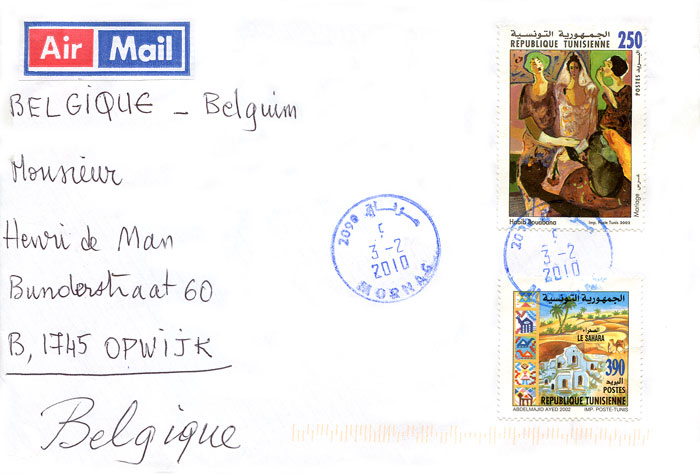 Air Mail
BELGIQUE - Belguim
Monsieur
Henri de Man
Bunderstraat 60
B, 1745 OPWIJK
Belgique
الجمهورية التونسية
REPUBLIQUE TUNISIENNE 250
POSTES البريد
Mariage عرس
Habib Bouabana Imp. Poste Tunis 2002
2090 مرناق
3-2
2010
MORNAG
2090
3-2
2010
الجمهورية التونسية
الصحراء
LE SAHARA
390
البريد
POSTES
REPUBLIQUE TUNISIENNE
ABDELMAJID AYED 2002 IMP. POSTE-TUNIS